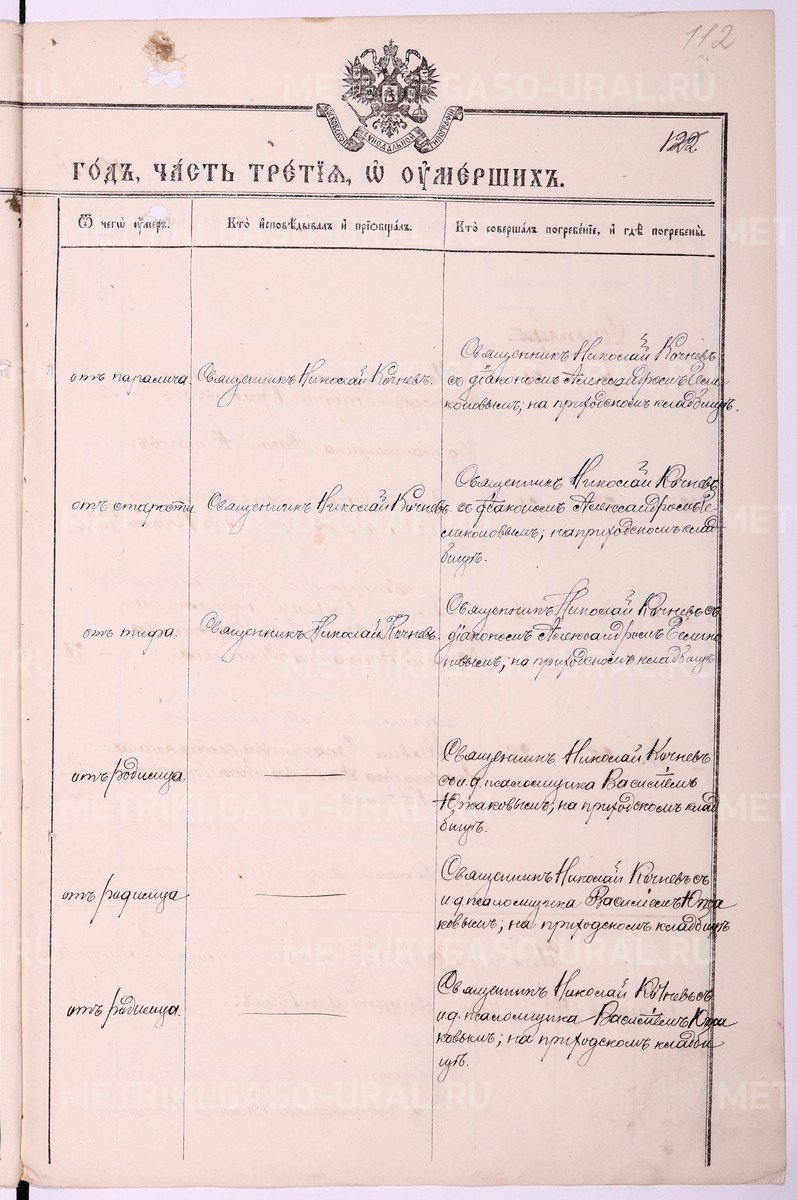 112
МОСКОВСКОЙ СѴНОДАЛЬНОЙ ТИПОГРАФІИ
122
ГОДЪ, ЧАСТЬ ТРЕТІЯ, Ѡ ОУМЕРШИХЪ.
Ѿ чегѡ оумеръ.
Кто исповѣдывалъ и пріобщалъ.
Кто совершалъ погребеніе, и гдѣ погребены.
отъ паралича.
Священникъ Николай Кочневъ.
Священникъ Николай Кочневъ
съ діакономъ Александромъ
коповымъ; на приходскомъ кладбищѣ.
отъ старости
Священникъ Николай Кочневъ.
Священник Николай Кочневъ
съ діакономъ Александромъ
на приходскомъ клад-
бищѣ.
отъ тифа.
Священникъ Николай Кочневъ.
Священникъ Николай Кочневъ съ
діакономъ Александромъ
на приходскомъ кладбищѣ
отъ родимца.
Священникъ Николай Кочневъ
съ и.д. псаломщика Василіемъ
Южаковымъ; на приходскомъ клад
бищѣ.
отъ родимца
Священникъ Николай Кочневъ съ
и д псаломщика Василіемъ Южа
ковымъ; на приходскомъ кладбищѣ
отъ родимца.
Священникъ Николай Кочневъ съ
и.д. псаломщика Василіемъ Южа
ковымъ; на приходскомъ кладби
щѣ.
METRIKI.GASO-URAL.RU